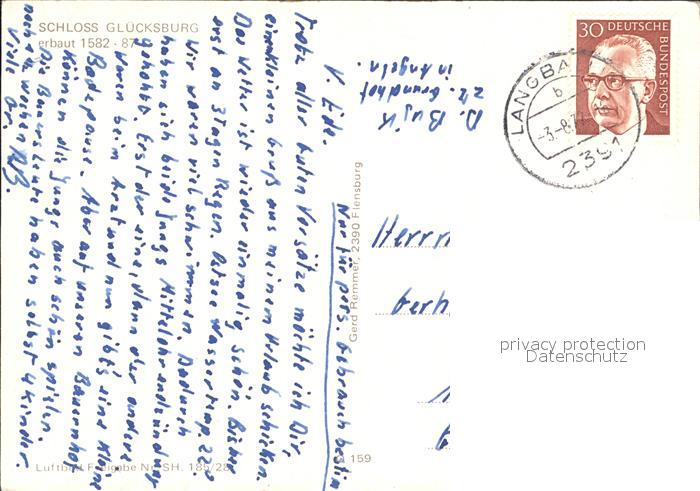 SCHLOSS GLÜCKSBURG
erbaut 1582 - 87
30 DEUTSCHE
BUNDESPOST
LANGBA
b
-3.-8.7
2391
D. Bujk
z.Z. Grundhof
in Angeln.
Nur für pers. Gebrauch bestim
V. Eide.
Trotz aller guten Vorsätze möchte ich Dir,
einen kleinen Gruß aus meinem Urlaub schicken.
Das Wetter ist wieder einmalig schön. Bisher
erst an 3 Tagen Regen. Ostsee Wassertemp. 22°
Wir waren viel schwimmen. Dadurch
haben sich beide Jungs Mittelohrendzündung
gehohlt. Erst der eine, dann der andere.
Waren beim Arzt und nun gibt's eine kleine
Badepause. Aber auf unseren Bauernhof
können die Jungs auch schön spielen.
Die Bauersleute haben selbst 4 Kinder.
noch Wochen
Viele Gr.
Gerd Remmer, 2390 Flensburg
Herrn
Gerh
Luftbild Freigabe Nr. SH. 185/28
159
privacy protection
Datenschutz